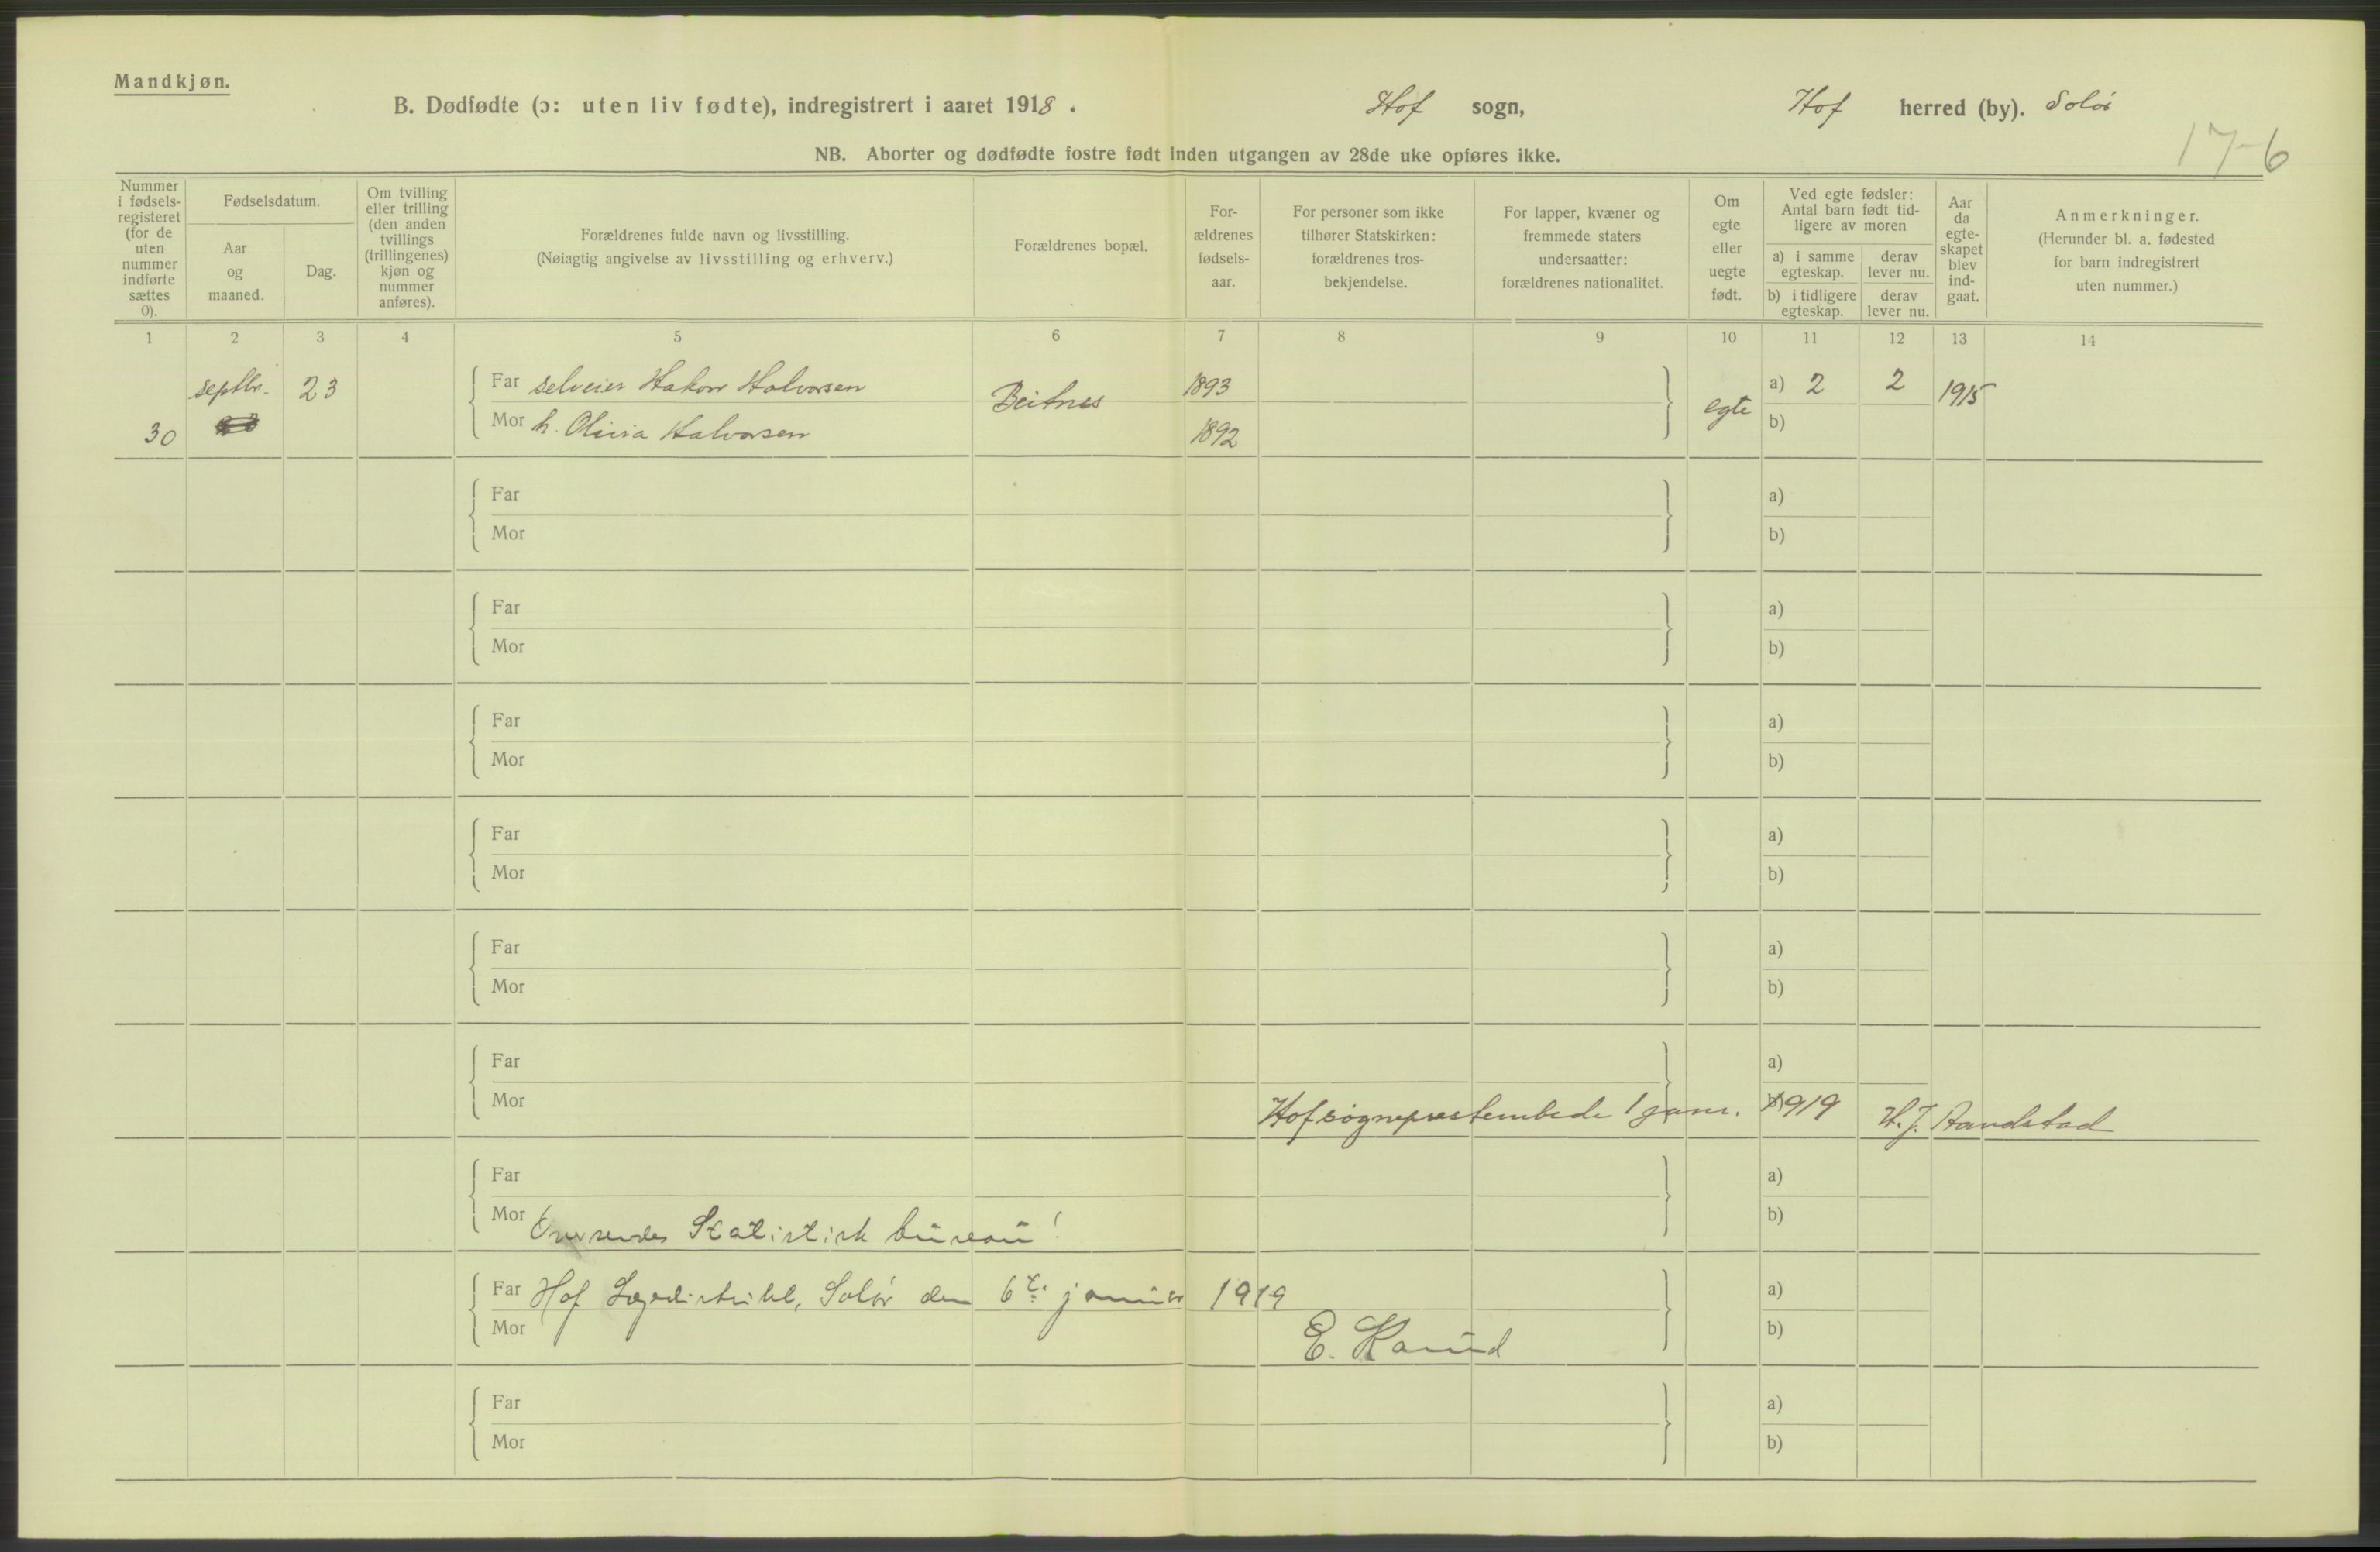 Mandkjøn.
B. Dødfødte (ɔ: uten liv fødte), indregistrert i aaret 1918. Hof sogn, Hof herred (by). Solør
17-6
NB. Aborter og dødfødte fostre født inden utgangen av 28de uke opføres ikke.
Nummer i fødsels-registeret (for de uten nummer indførte sættes 0).
Fødselsdatum.
Aar og maaned.
Dag.
Om tvilling eller trilling (den anden tvillings (trillingenes) kjøn og nummer anføres).
Forældrenes fulde navn og livsstilling.
(Nøiagtig angivelse av livsstilling og erhverv.)
Forældrenes bopæl.
For-ældrenes fødsels-aar.
For personer som ikke tilhører Statskirken: forældrenes tros-bekjendelse.
For lapper, kvæner og fremmede staters undersaatter: forældrenes nationalitet.
Om egte eller uegte født.
Ved egte fødsler: Antal barn født tid-ligere av moren
a) i samme egteskap. derav lever nu.
b) i tidligere egteskap. derav lever nu.
Aar da egte-skapet blev ind-gaat.
Anmerkninger.
(Herunder bl. a. fødested for barn indregistrert uten nummer.)
1 2 3 4 5 6 7 8 9 10 11 12 13 14
septbr. 23 Far selveier Hakon Halvorsen Beitnes 1893 egte a) 2 2 1915
30 Mor h. Olivia Halvorsen 1892 b)
Far a)
Mor b)
Far a)
Mor b)
Far a)
Mor b)
Far a)
Mor b)
Far a)
Mor b)
Far a)
Mor Hof sogneprestembede 1 janr. 1919 H. J. Randstad
Far a)
Mor Oversendes Statistisk bureau! b)
Far Hof Lægedistrikt, Solør den 6te januar 1919 a)
Mor E. b)
Far a)
Mor b)